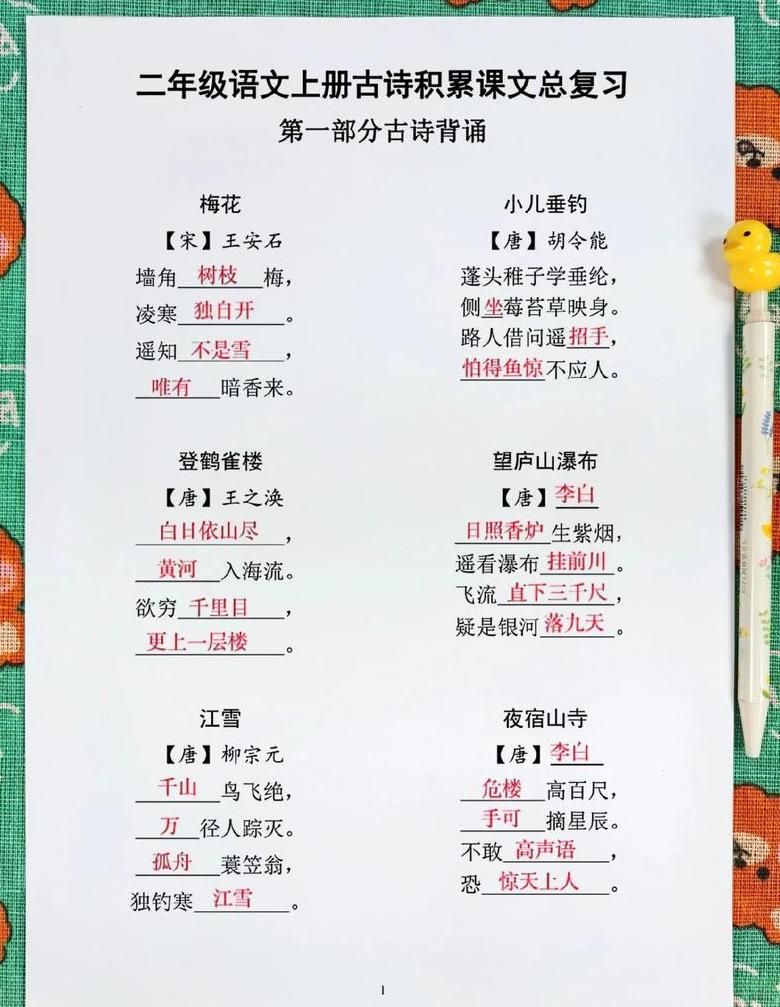 二年级语文上册古诗积累课文总复习
第一部分古诗背诵
梅花
【宋】王安石
墙角树枝梅，
凌寒独白开。
遥知不是雪，
唯有暗香来。
小儿垂钓
【唐】胡令能
蓬头稚子学垂纶，
侧坐莓苔草映身。
路人借问遥招手，
怕得鱼惊不应人。
登鹤雀楼
【唐】王之涣
白日依山尽，
黄河入海流。
欲穷千里目，
更上一层楼。
望庐山瀑布
【唐】李白
日照香炉生紫烟，
遥看瀑布挂前川。
飞流直下三千尺，
疑是银河落九天。
江雪
【唐】柳宗元
千山鸟飞绝，
万径人踪灭。
孤舟蓑笠翁，
独钓寒江雪。
夜宿山寺
【唐】李白
危楼高百尺，
手可摘星辰。
不敢高声语，
恐惊天上人。
1